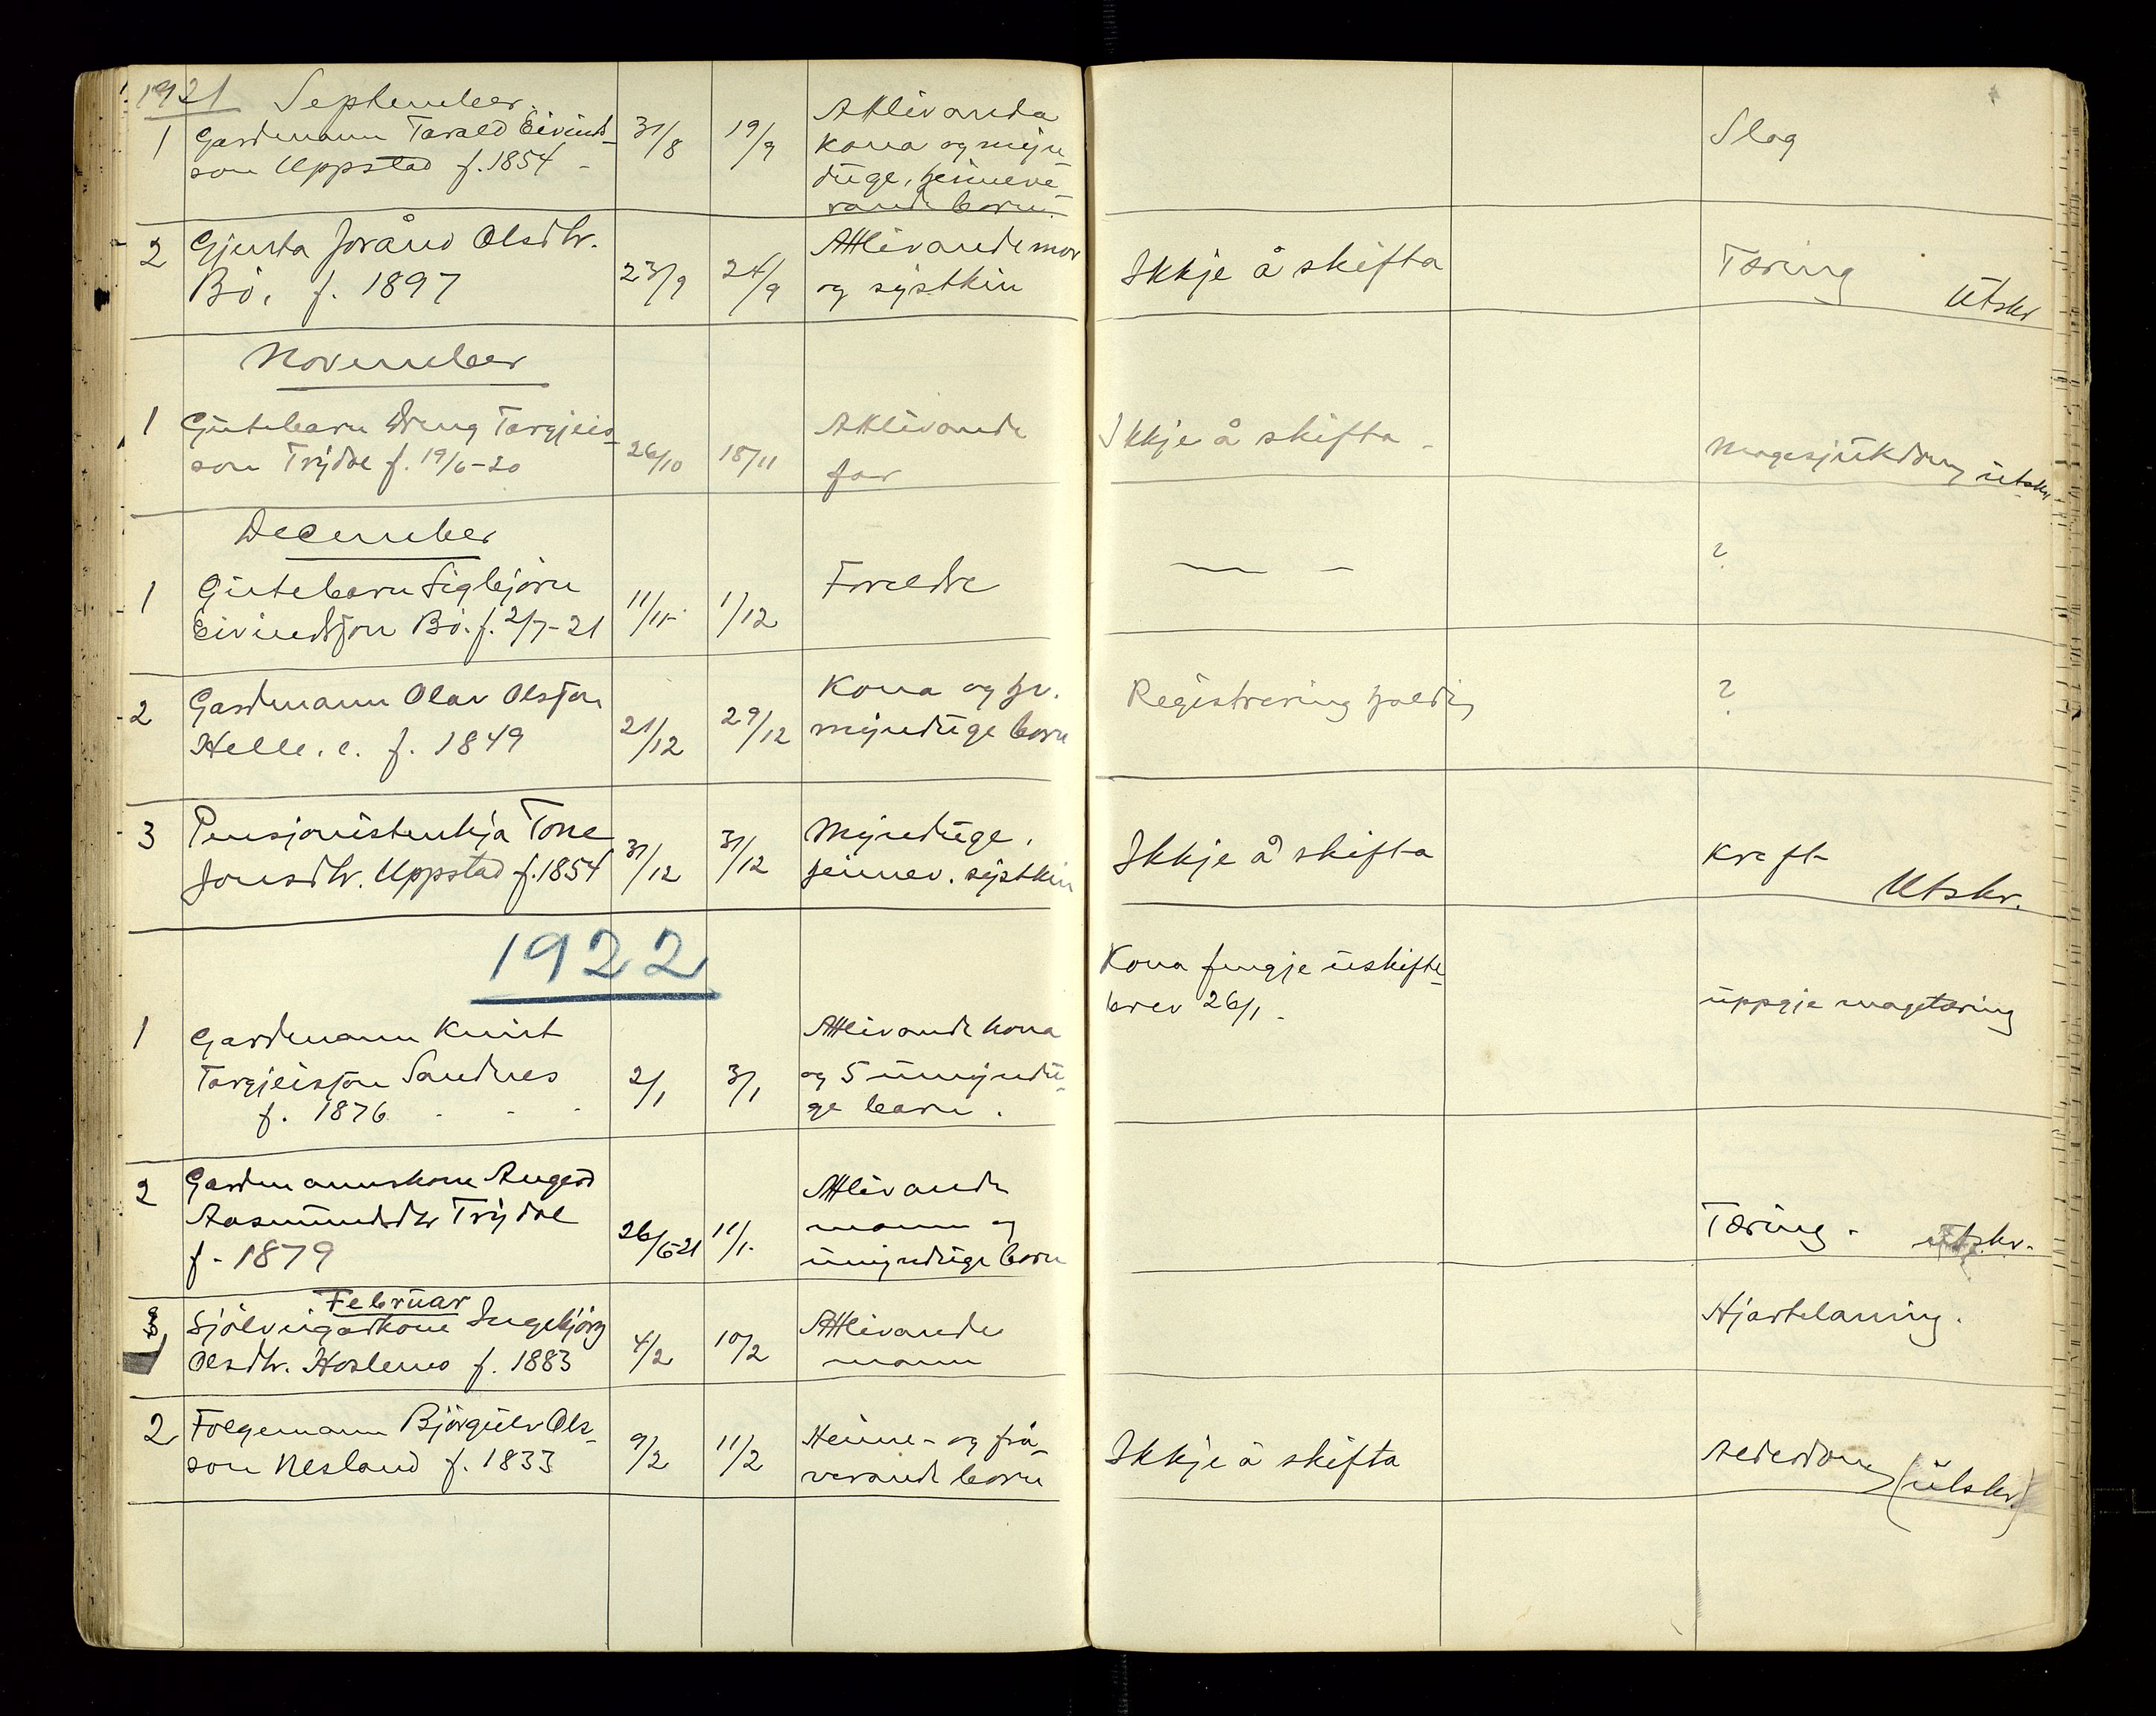 1921 September.
1 Gardmann Tarald Eivinds-
son Uppstad f. 1854 -
31/8 19/9
Attlivanda
kona og myn
duge, heimeve-
rande born.
Slag
2 Gjenta Jorånd Olsdtr.
Bö, f. 1897
23/9 24/9
Attlivande mor
og systkin
Ikkje å skifta
Tæring
Utskr
November
1 Gutebarn Dreng Targjeis-
son Trydal f. 19/6-20
26/10 18/11
Attlivande
far
Ikkje å skifta -
Magesjukdom utskr.
December
1 Gutebarn Sigbjörn
Eivindsson Bö. f. 2/7-21
11/11 1/12
Foreldre
— –
?
2 Gardmann Olav Olsson
Helle. e. f. 1849
21/12 29/12
Kona og hv.
mynduge born
Registrering haldi
?
3 Pensjonistenkja Tone
Jonsdtr. Uppstad f. 1854
31/12 31/12
Mynduge,
heimev. systkin
Ikkje å skifta
Kreft
Utskr.
1922
1 Gardmann Knut
Targjeisson Sandnes
f. 1876 - - -
2/1 3/1
Attlivande kona
og 5 umyndu-
ge barn.
Kona fengje uskifte-
brev 26/1 -
uppgje magetæring
2 Gardmannskone Angerd
Aasmundsdtr Trydal
f. 1879
26/6 21 11/1.
Attlivande
mann og
umynduge born
Tæring - utskr.
Februar
Sjölveigarkone Ingebjörg
Olsdtr. Hoslemo f. 1883
4/2 10/2
Attlivande
mann
Hjartelaming.
2 Folgemann Björgulv Ols-
son Nesland f. 1833
9/2 11/2
Heime- og frå-
verande born
Ikkje å skifta
Alderdom (utskr.)